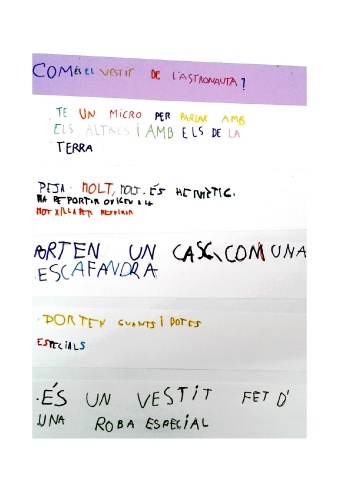 COM és el VESTIT DE L'ASTRONAUTA?
TE UN MICRO PER PARLAR AMB
ELS ALTRES I AMB ELS DE LA
TERRA
PESA MOLT, ÉS HERMÈTIC.
HA DE PORTIR OXIGEN A LA
MOTXILLA PER RESPIRAR
PORTEN UN CASC, COM UNA
ESCAFANDRA
·PORTEN GUANTS I BOTES
ESPECIALS
·ÉS UN VESTIT FET D'
UNA ROBA ESPECIAL